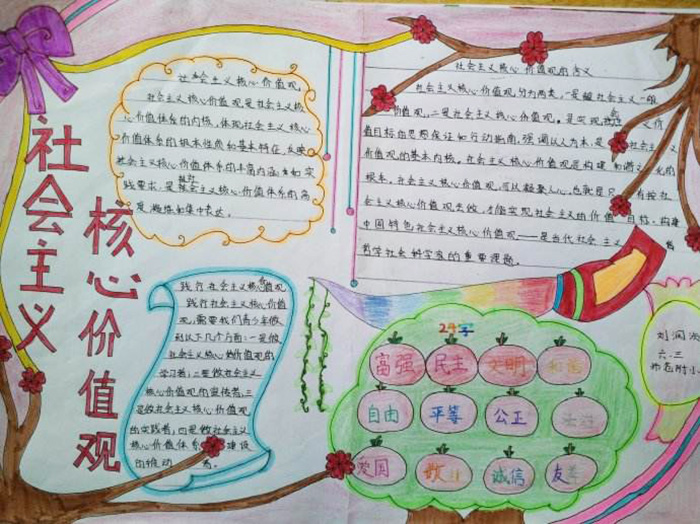 社会主义
核心价值观
社会主义核心价值观
社会主义核心价值观是社会主义核
心价值体系的内核，体现社会主义核心
价值体系的根本性质和基本特征，反映
社会主义核心价值体系的丰富内涵和实
践要求，是社会主义核心价值体系的高
度凝练和集中表达。
社会主义核心价值观的含义
社会主义核心价值观分为两类，一是
价值观，二是社会主义核心价值观。是实现
值目标的思想保证和行动指南，强调以人为本，是
价值观的基本内核。社会主义核心价值观是构建和谐
根本。社会主义核心价值观，可以凝聚人心，也就是只有按社
会主义核心价值观去做，才能实现社会主义的价值目标。构建
中国特色社会主义核心价值观——是当代社会主义
哲学社会科学家的重要课题。
践行社会主义核心价值观
践行社会主义核心价值
观，需要我们青少年做
到以下几个方面：一是做
社会主义核心价值观的
学习者，二是做社会主义
核心价值观的宣传者，三
是做社会主义核心价值观
的实践者，四是做社会主义
核心价值体系建设
的推动者。
24字
富强 民主 文明 和谐
自由 平等 公正 法治
爱国 敬业 诚信 友善
六.三